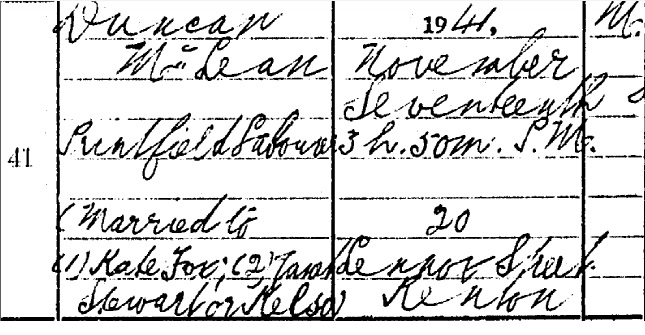 41
Duncan
McLean
Printfield Labourer
(Married to
(1) Kate Fox; (2) Sarah
Stewart or Kelso)
1941.
November
Seventeenth
3 h. 50m. P.M.
20
Lennox Street
Renton
M.